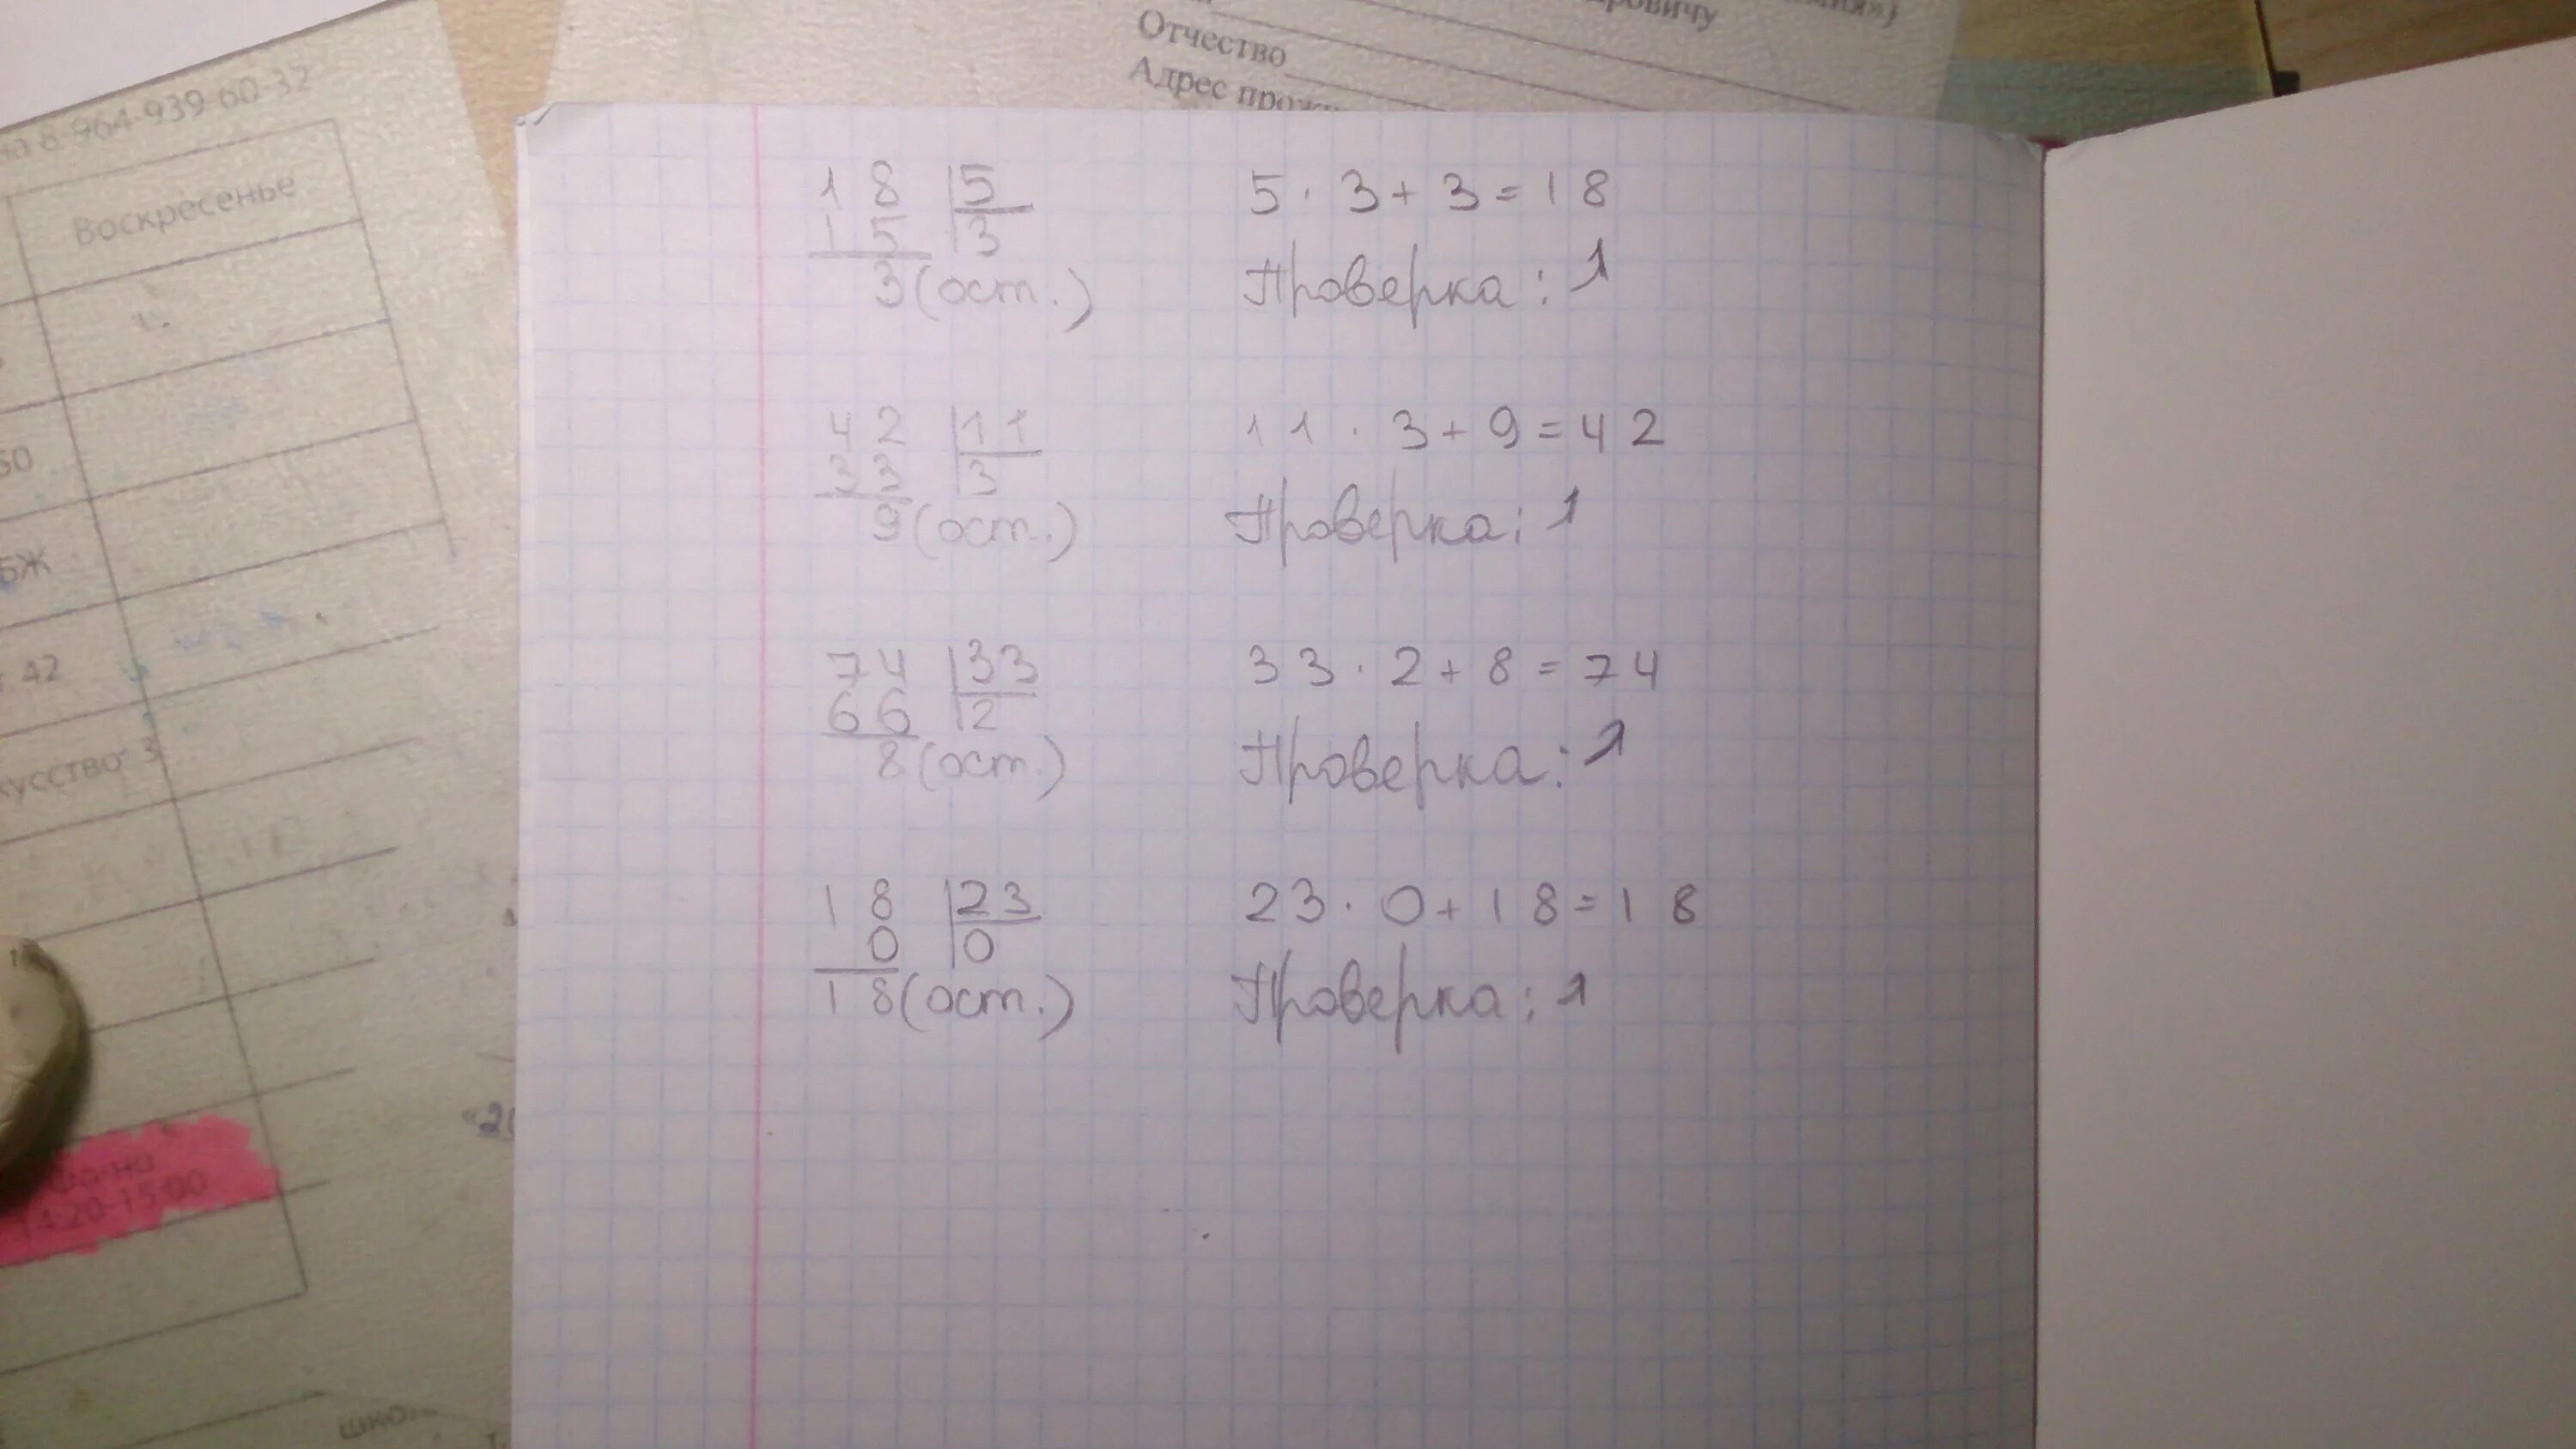 дровичу
Отчество
Адрес прожи
на 8-964-939-60-32
Воскресенье
50
БЖ
42
кусство 3
14:20-15:00
шко
18 | 5 5 · 3 + 3 = 18
15 | 3
3 (ост.) Проверка: 1
42 | 11 11 · 3 + 9 = 42
33 | 3
9 (ост.) Проверка: 1
74 | 33 33 · 2 + 8 = 74
66 | 2
8 (ост.) Проверка: 1
18 | 23 23 · 0 + 18 = 18
0 | 0
18 (ост.) Проверка: 1